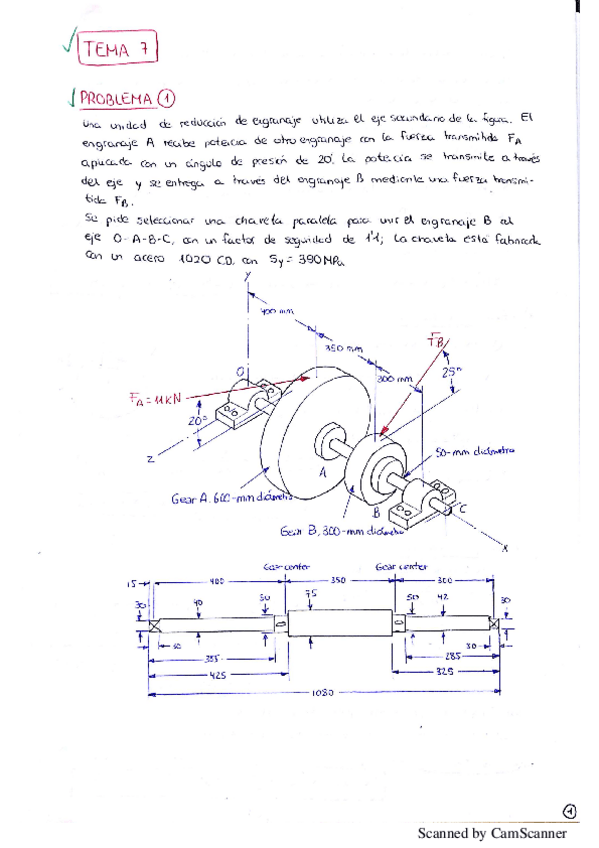 TEMA 7
PROBLEMA 1
Una unidad de reducción de engranaje utiliza el eje secundario de la figura. El
engranaje A recibe potencia de otro engranaje con la fuerza transmitida FA
aplicada con un ángulo de presión de 20°. La potencia se transmite a través
del eje y se entrega a través del engranaje B mediante una fuerza transmi-
tida FB.
Se pide seleccionar una chaveta paralela para unir el engranaje B al
eje O-A-B-C, con un factor de seguridad de 1'1; La chaveta está fabricada
con un acero 1020 CD, con Sy = 390 MPa
y
400 mm
350 mm
FB
O
300 mm
25°
FA = 11 kN
20°
z
50-mm diámetro
A
Gear A, 600-mm diámetro
B
C
Gear B, 300-mm diámetro
x
Gear center
Gear center
15
400
350
300
30
40
50
75
50
42
30
30
30
385
285
425
325
1080
1
Scanned by CamScanner